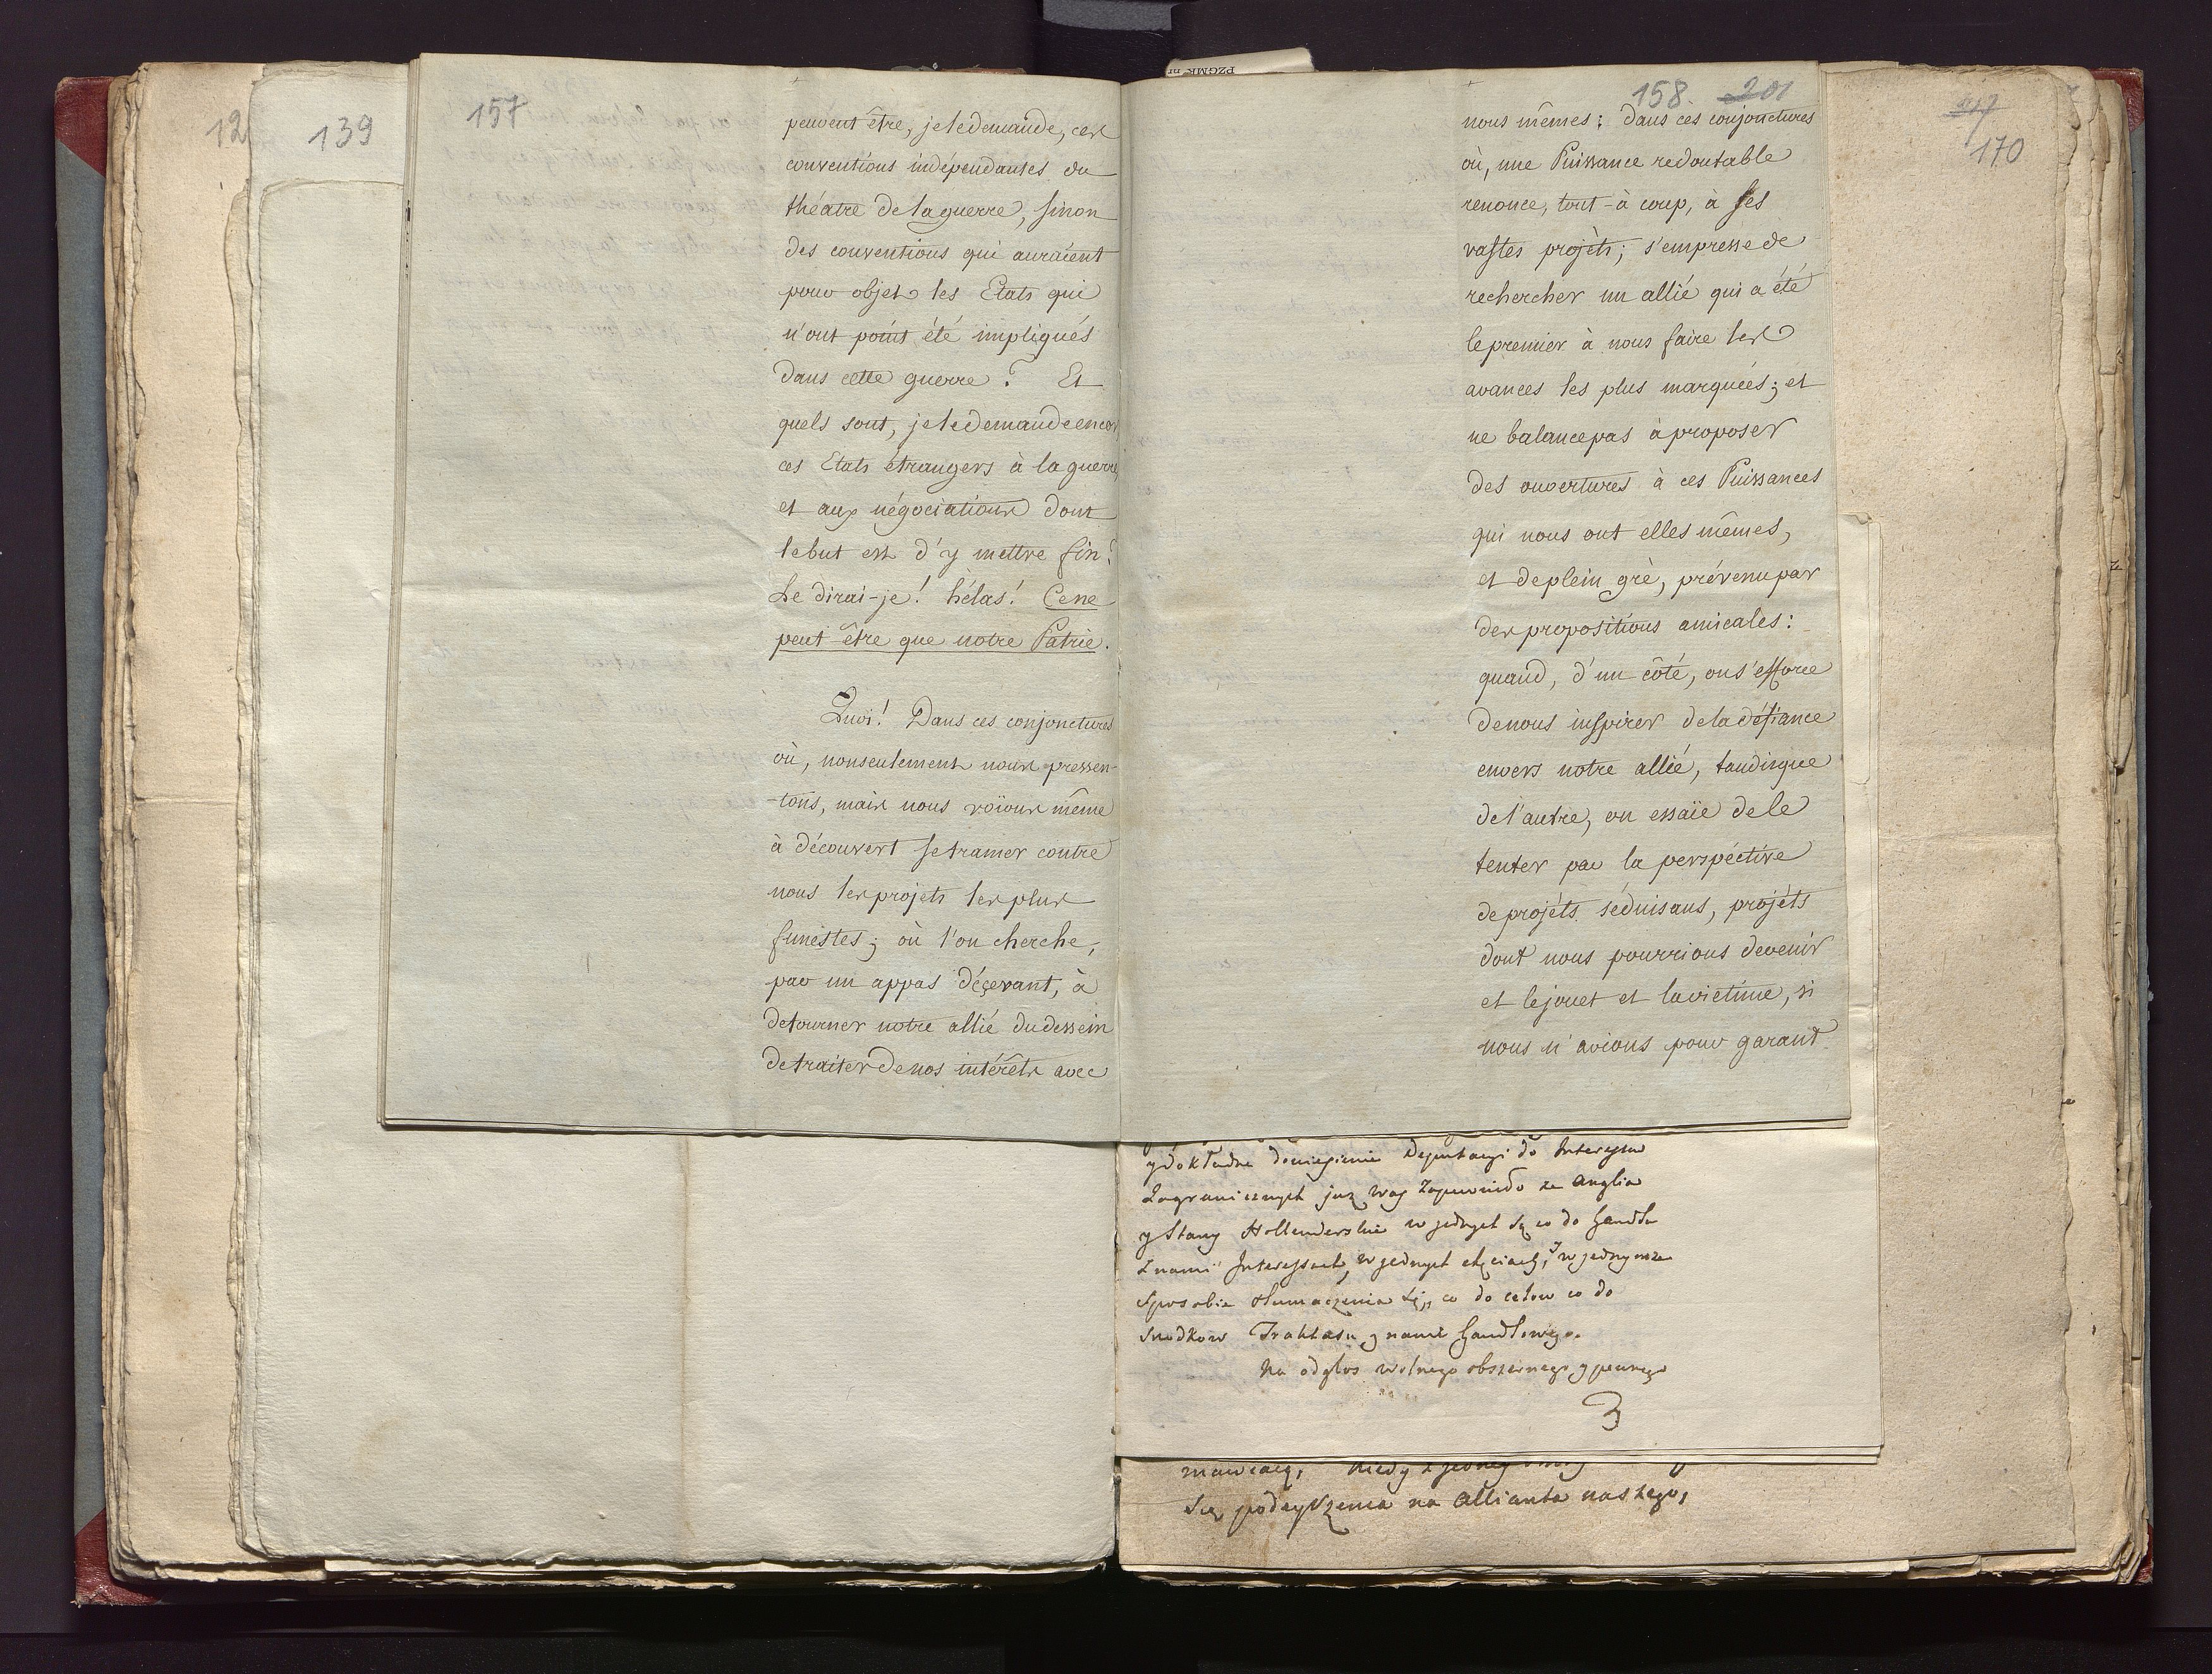 12
139
157
peuvent être, je le demande, ces
conventions indépendantes du
théatre de la guerre, sinon
des conventions qui auraient
pour objet les Etats qui
n'ont point été impliqués
dans cette guerre? Et
quels sont, je le demande encor,
ces Etats étrangers à la guerre,
et aux négociations dont
le but est d'y mettre fin?
Le dirai-je! hélas! Ce ne
peut être que notre Patrie.
Quoi! Dans ces conjonctures
où, nonseulement nous pressen-
-tons, mais nous voïons même
à découvert se tramer contre
nous les projets les plus
funestes; où l'on cherche,
par un appas déçevant, à
detourner notre allié du dessein
de traiter de nos intérêts avec
158. 201
nous mêmes; dans ces conjonctures
où, une Puissance redoutable
renonce, tout-à coup, à ses
vastes projèts; s'empresse de
rechercher un allié qui a été
le premier à nous faire les
avances les plus marquées; et
ne balance pas à proposer
des ouvertures à ces Puissances
qui nous ont elles mêmes,
et de plein gré, prévenu par
des propositions amicales:
quand, d'un côté, on s'efforce
de nous inspirer de la défiance
envers notre allié, tandisque
de l'autre, on essaïe de le
tenter par la perspéctive
de projéts séduisans, projéts
dont nous pourrions devenir
et le jouet et la victime, si
nous n'avions pour garant
170
y dokładne doniesienie Deputacyi do Interesow
Zagranicznych juz was zapewniło ze Anglia
y Stany Hollenderskie w jednych są co do handlu
z nami Interessach, w jednych chęciach, w jednymze
sposobie tłumaczenia się, co do celow co do
srodkow Traktatu z nami handlowego.
Na odgłos wolnego obszernego y pewnego
3
się podeyrzenia na Allianta naszego,